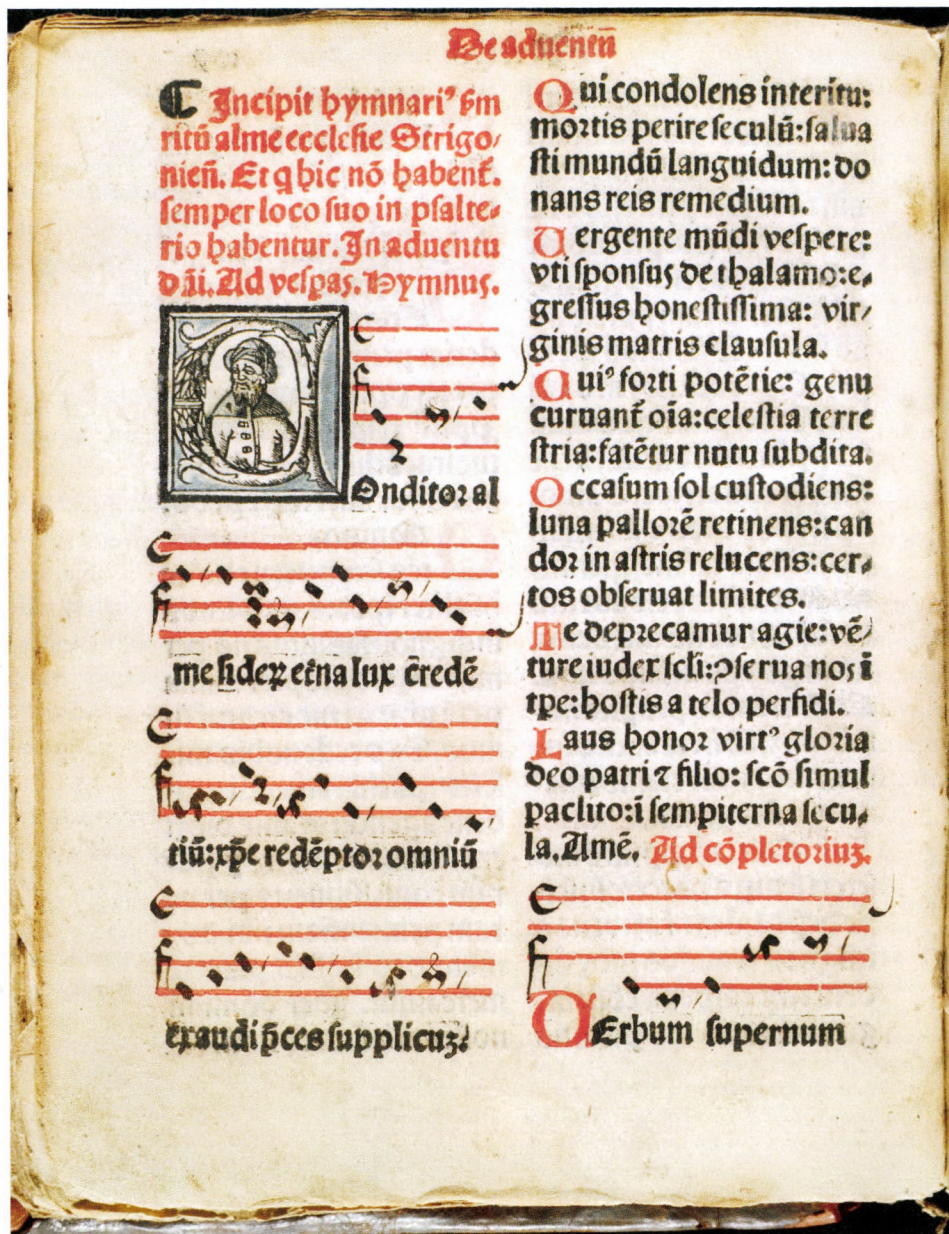 De aduentu
Incipit hymnari⁹ ẜm
ritũ alme ecclesie Strigo⸗
nien̄. Et q hic nō habent̄.
semper loco suo in psalte⸗
rio habentur. In aduentu
dñi. Ad vesꝑas. Hymnus.
COnditor al
me siderꝝ etňa lux c̄redē
tiũ: xp̄e redēptor omniũ
exaudi p̄ces supplicuꝫ.
Qui condolens interitu:
mortis perire seculũ: salua
sti mundũ languidum: do
nans reis remedium.
Uergente mũdi vespere:
vti sponsus de thalamo: e⸗
gressus honestissima: vir⸗
ginis matris clausula.
Cui⁹ forti potētie: genu
curuant̄ oīa: celestia terre
stria: fatētur nutu subdita.
Occasum sol custodiens:
luna pallorē retinens: can
dor in astris relucens: cer⸗
tos obseruat limites.
Te deprecamur agie: vē⸗
ture iudex scłi: ꝯserua nos ī
tp̄e: hostis a telo perfidi.
Laus honor virt⁹ gloria
deo patri ⁊ filio: scō simul
paclito: ī sempiterna secu⸗
la. Amē. Ad cōpletoriuꝫ.
UErbum supernum